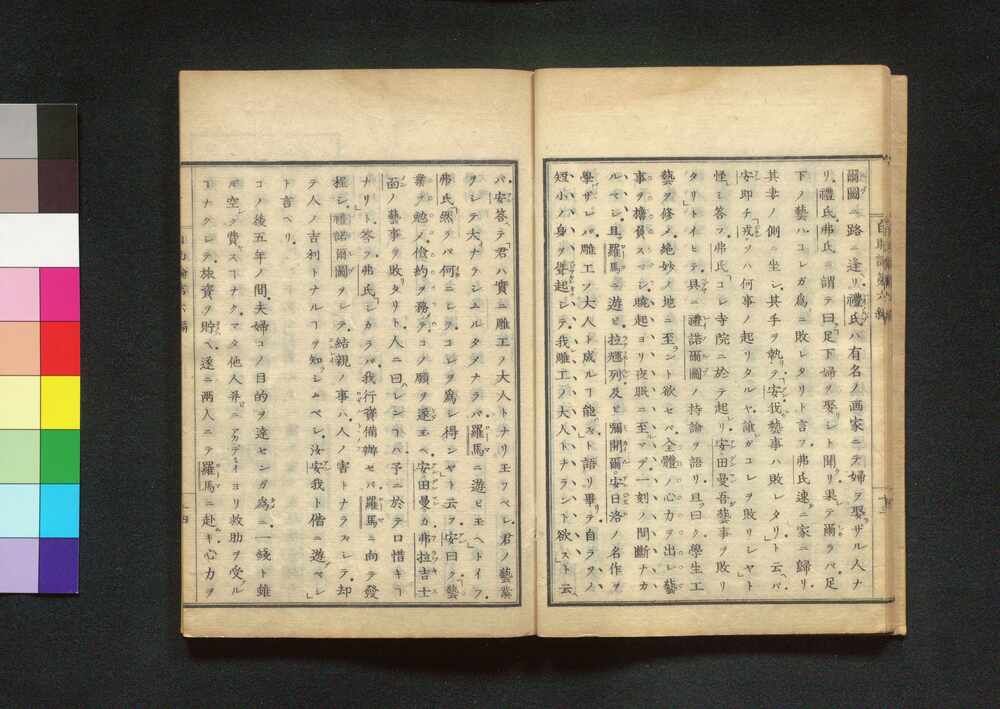 爾圖ニ路ニ逢リ禮氏ハ有名ノ画家ニテ婦ヲ娶ザル人ナ
リ禮氏弗氏ニ謂テ曰足下婦ヲ娶シト聞リ果テ爾ラバ足
下ノ藝ハコレガ為ニ敗レタリト言フ弗氏速ニ家ニ歸リ
其妻ノ側ニ坐シ其手ヲ執テ安我藝事ハ敗レタリト云バ
安即チ戎ソハ何事ノ起リタルヤ誰ガコレヲ敗リレヤト
怪ミ答フ弗氏コレ寺院ニ於テ起リ安田曼吾藝事ヲ敗リ
タリトイヒテ具ニ禮諾爾圖ノ持論ヲ語リ且曰ク學生工
藝ヲ修メ絶妙ノ地ニ至ント欲セバ全體ノ心力ヲ出シ藝
事ヲ擔負スベシ曉起ヨリ夜眠ニ至マデ一刻ノ間斷ナカ
ルベシ且羅馬ニ遊ビ拉爾及ビ彌開爾安日洛ノ名作ヲ
學ザレバ雕工ノ大人ト成ルヿ能ズト語リ畢テ自ラソノ
短小ノ身ヲ聳起シテ我雕工ノ大人トナラント欲スト云
バ安答テ君ハ實ニ雕工ノ大人トナリ玉フベシ君ノ藝業
ヲシテ大ナラシムルタメナラバ羅馬ニ遊ビ玉ヘトイフ
弗氏然ラバ何ニシテコレヲ為シ得ンヤト云フ安曰ク藝
業ヲ勉メ儉約ヲ務テコノ願ヲ遂玉ヘ安田曼カ弗拉吉士
面ノ藝事ヲ敗タリト人ニ曰レンヿハ予ニ於テ口惜キヿ
ナリト答フ弗氏シカラバ我行資備辦セバ羅馬ニ向テ發
程シ禮諾爾圖ヲシテ結親ノ事ハ人ノ害トナラズシテ却
テ人ノ吉利トナルヿヲ知シムベシ汝安我ト偕ニ遊ベシ
ト言ヘリ
コノ後五年ノ間夫婦コノ目的ヲ達センガ為ニ一錢ト雖
ドモ空ク費スヿナクマタ他人并ニアカデミイヨリ救助ヲ受ル
ヿナクシテ旅資ヲ貯ヘ遂ニ兩人ニテ羅馬ニ赴キ心力ヲ